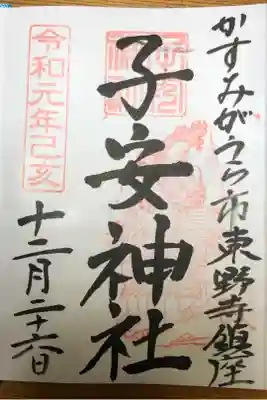 かすみがうら市東野寺鎮座
子安神社
令和元年己亥
十二月二十六日